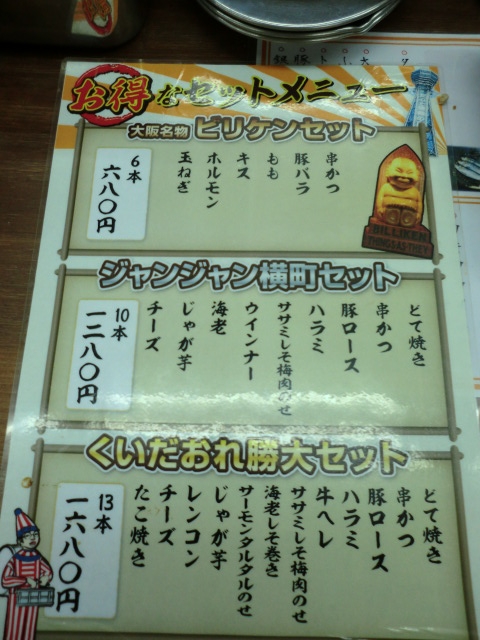 お得なセットメニュー
大阪名物 ビリケンセット
串かつ
豚バラ
もも
キス
ホルモン
玉ねぎ
6本
六八〇円
BILLIKEN
THINGS AS THEY
ジャンジャン横町セット
とて焼き
串かつ
豚ロース
ハラミ
ササミしそ梅肉のせ
ウインナー
海老
じゃが芋
チーズ
10本
一二八〇円
くいだおれ勝大セット
とて焼き
串かつ
豚ロース
ハラミ
牛ヘレ
ササミしそ梅肉のせ
海老しそ巻き
サーモンタルタルのせ
じゃが芋
レンコン
チーズ
たこ焼き
13本
一六八〇円